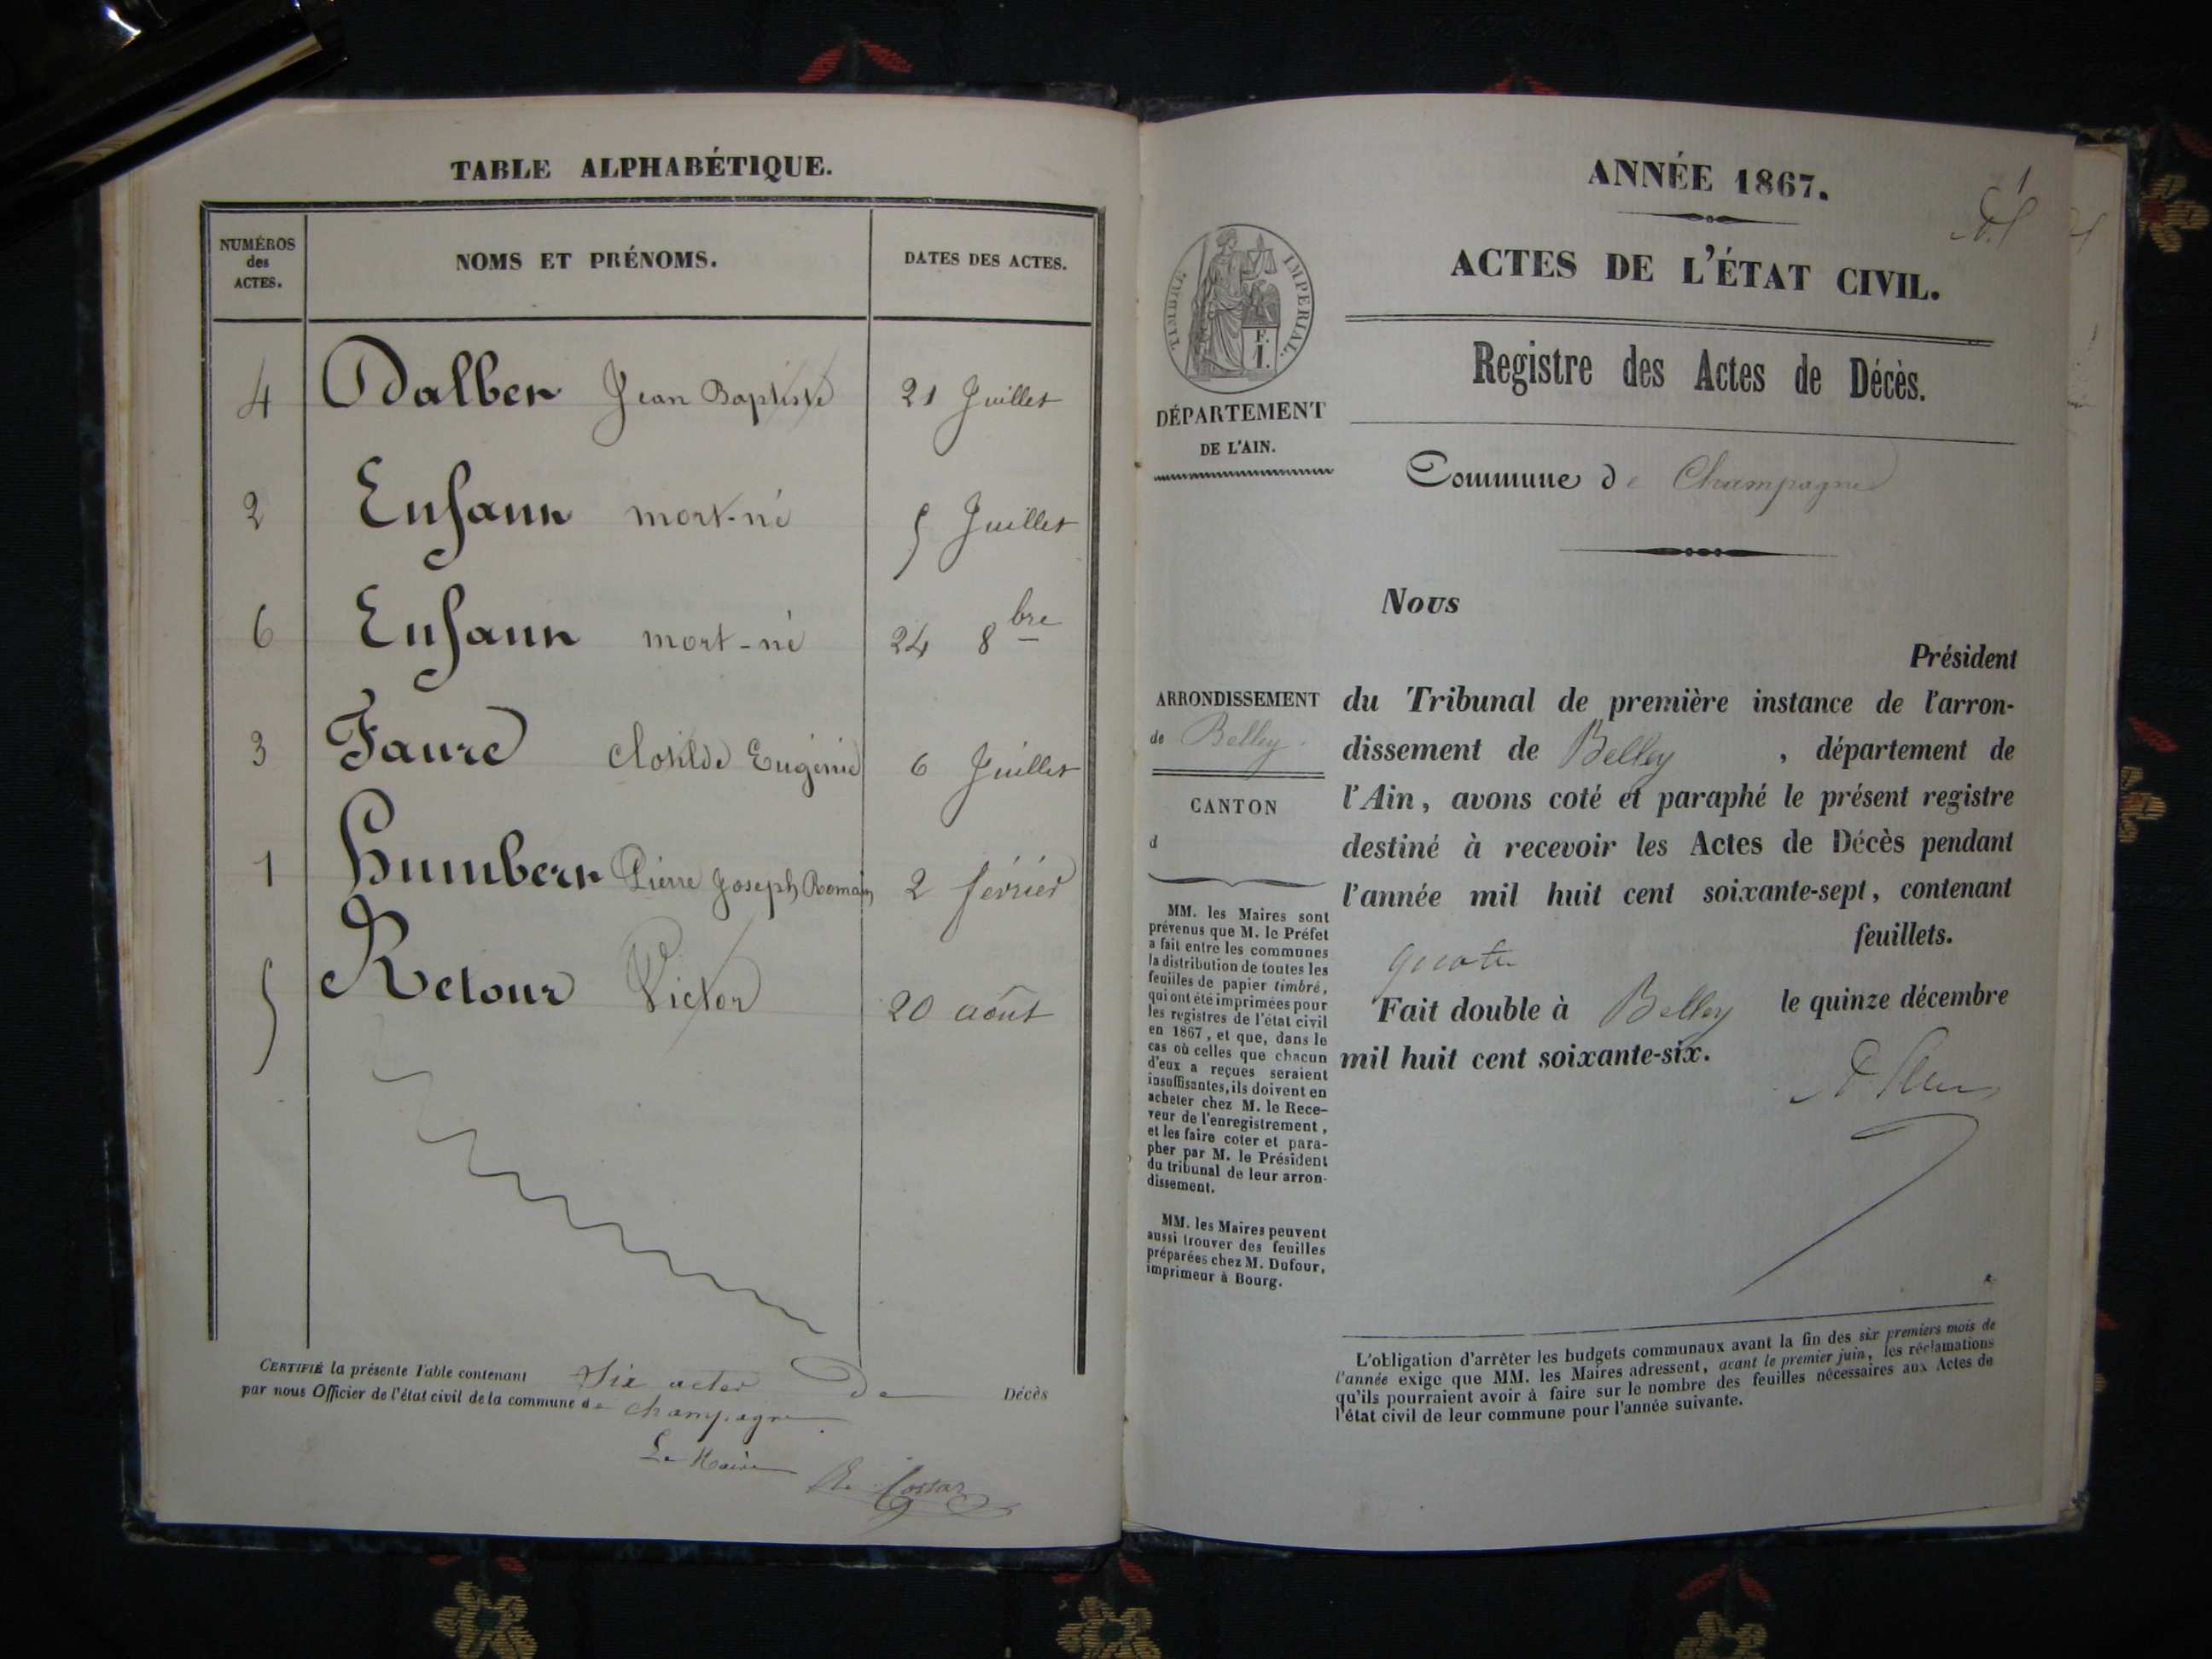 TABLE ALPHABÉTIQUE.
NUMÉROS
des
ACTES.
NOMS ET PRÉNOMS.
DATES DES ACTES.
4 Dalber Jean Baptiste 21 Juillet
2 Enfant mort-né 5 Juillet
6 Enfant mort-né 24 8bre
3 Faure Clotilde Eugénie 6 Juillet
1 Humbert Pierre Joseph Romain 2 février
5 Retour Victor 20 août
CERTIFIÉ la présente Table contenant Six actes de Décès
par nous Officier de l'état civil de la commune de Champagne
Le Maire
ANNÉE 1867.
1
ACTES DE L'ÉTAT CIVIL.
TIMBRE IMPERIAL.
F.
1.
Registre des Actes de Décès.
DÉPARTEMENT
DE L'AIN.
Commune de Champagne
Nous
Président
ARRONDISSEMENT
de Belley.
CANTON
d
du Tribunal de première instance de l'arron-
dissement de Belley, département de
l'Ain, avons coté et paraphé le présent registre
destiné à recevoir les Actes de Décès pendant
l'année mil huit cent soixante-sept, contenant
quatre feuillets.
Fait double à Belley le quinze décembre
mil huit cent soixante-six.
MM. les Maires sont
prévenus que M. le Préfet
a fait entre les communes
la distribution de toutes les
feuilles de papier timbré,
qui ont été imprimées pour
les registres de l'état civil
en 1867, et que, dans le
cas où celles que chacun
d'eux a reçues seraient
insuffisantes, ils doivent en
acheter chez M. le Rece-
veur de l'enregistrement,
et les faire coter et para-
pher par M. le Président
du tribunal de leur arron-
dissement.
MM. les Maires peuvent
aussi trouver des feuilles
préparées chez M. Dufour,
imprimeur à Bourg.
L'obligation d'arrêter les budgets communaux avant la fin des six premiers mois de
l'année exige que MM. les Maires adressent, avant le premier juin, les réclamations
qu'ils pourraient avoir à faire sur le nombre des feuilles nécessaires aux Actes de
l'état civil de leur commune pour l'année suivante.